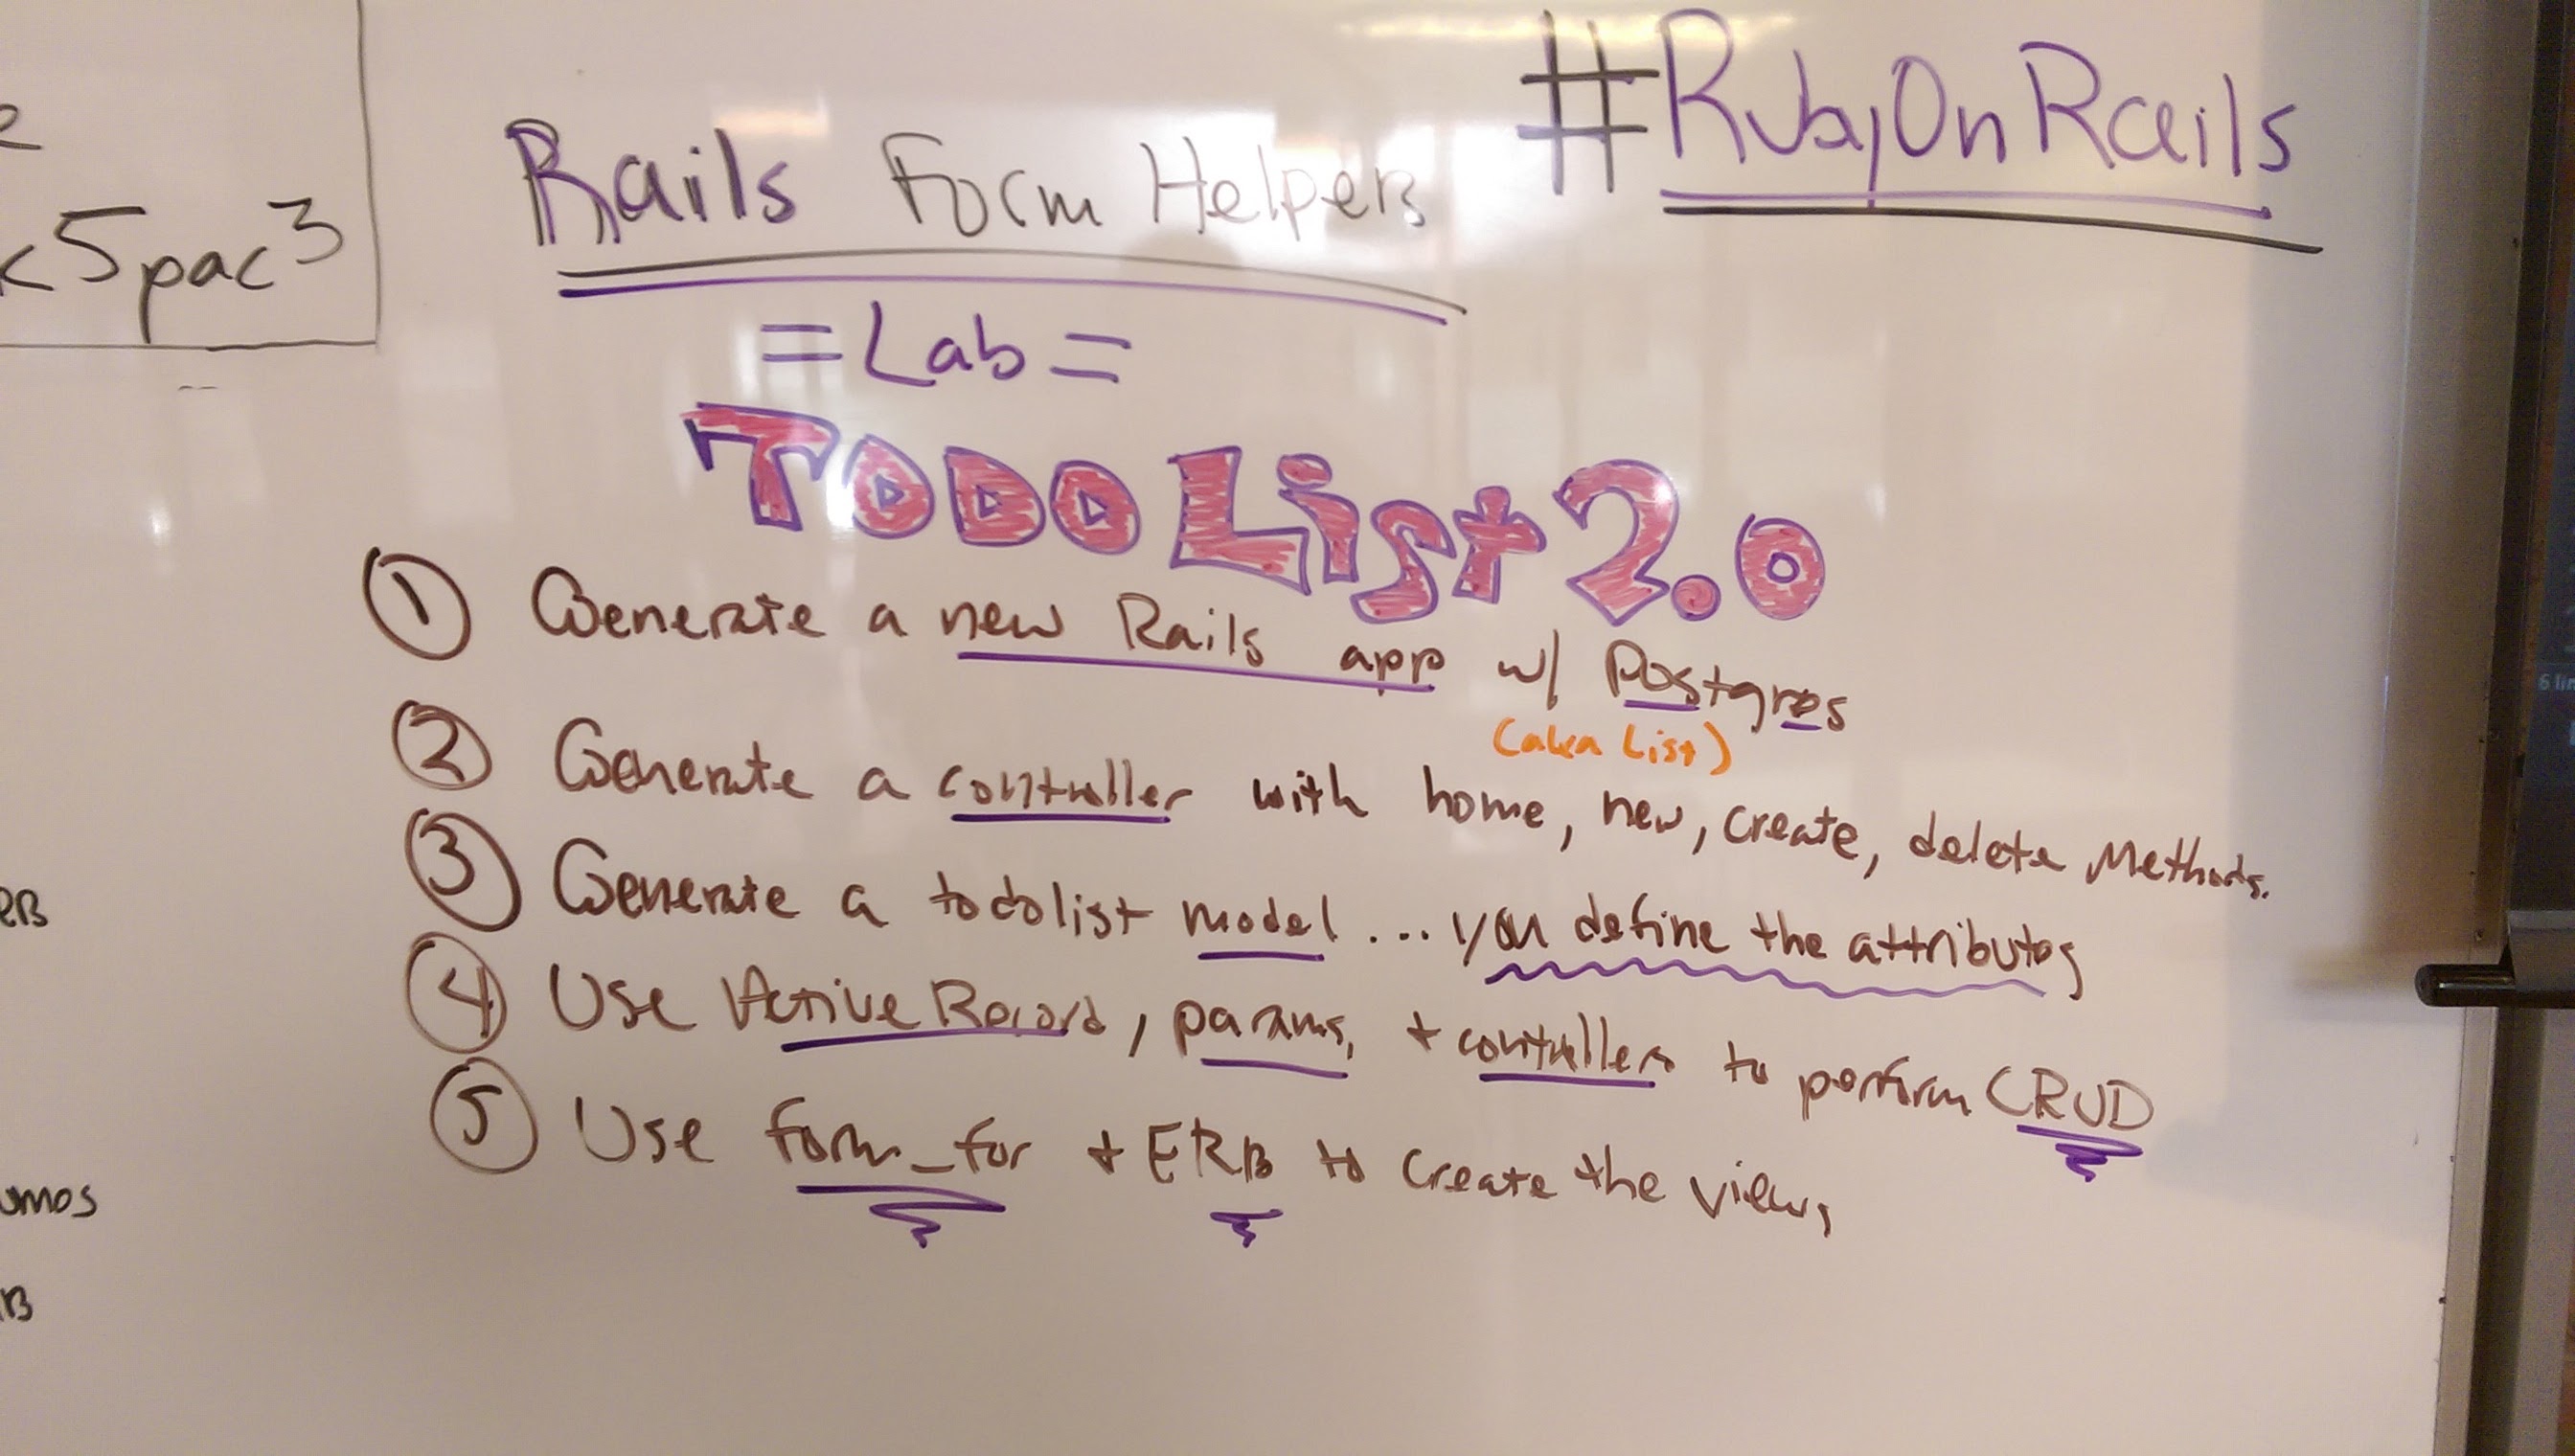 #RubyOnRails
Rails Form Helpers
=Lab=
TODO List 2.0
① Generate a new Rails app w/ Postgres
(aka List)
② Generate a controller with home, new, create, delete Methods.
③ Generate a todolist model ... you define the attributes
④ Use Active Record, params, + controllers to perform CRUD
⑤ Use form_for + ERB to create the views
5pac3
umos